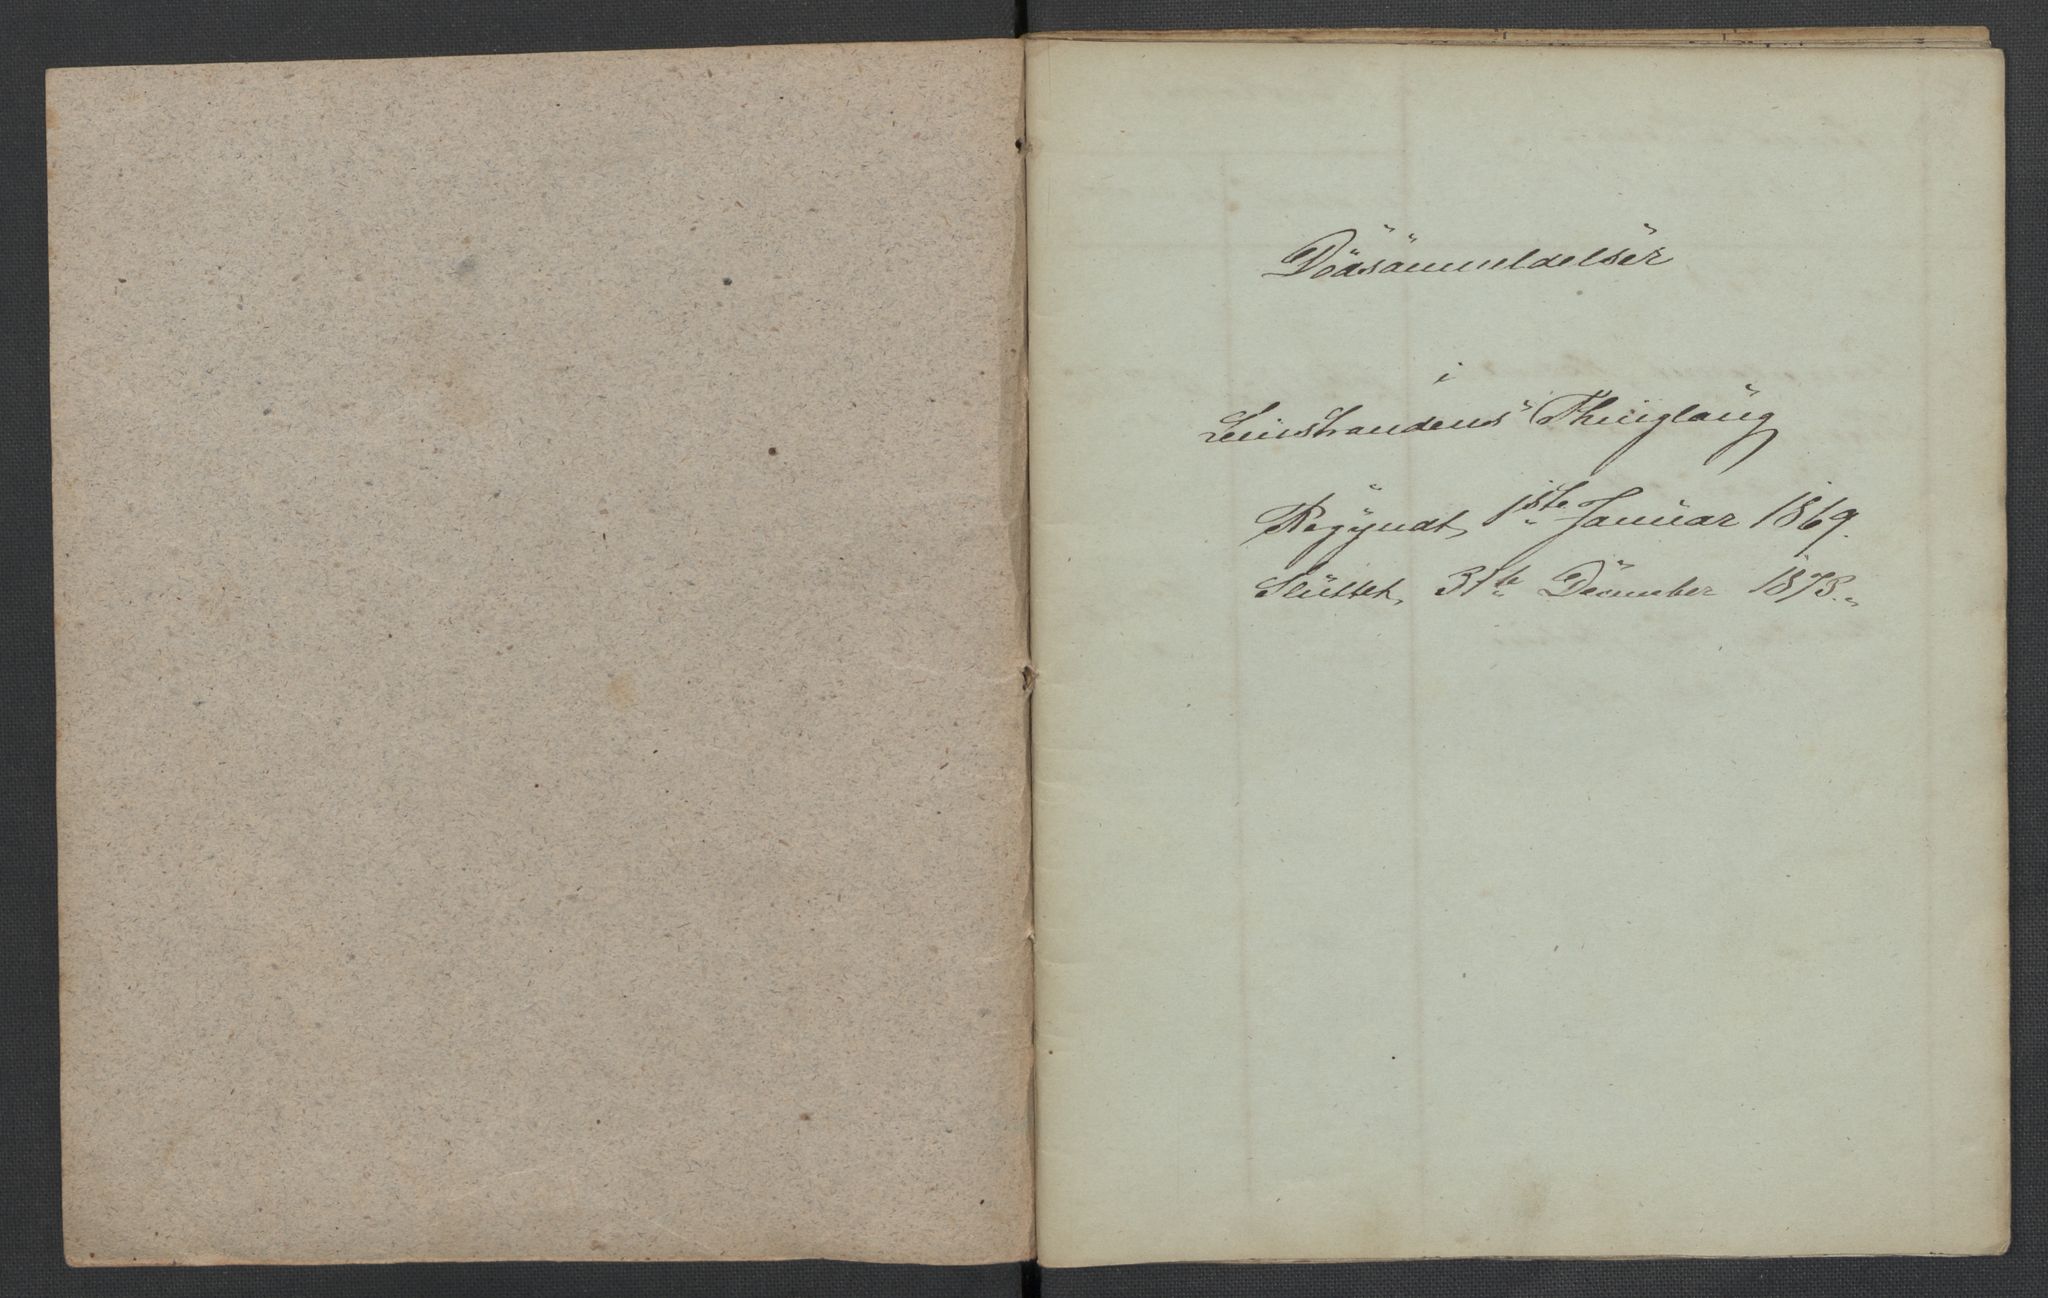 Dödsanmeldelser
i
Leinstrandens Thinglaug
Begyndt, 1ste Januar 1869.
Sluttet, 31te December 1873.